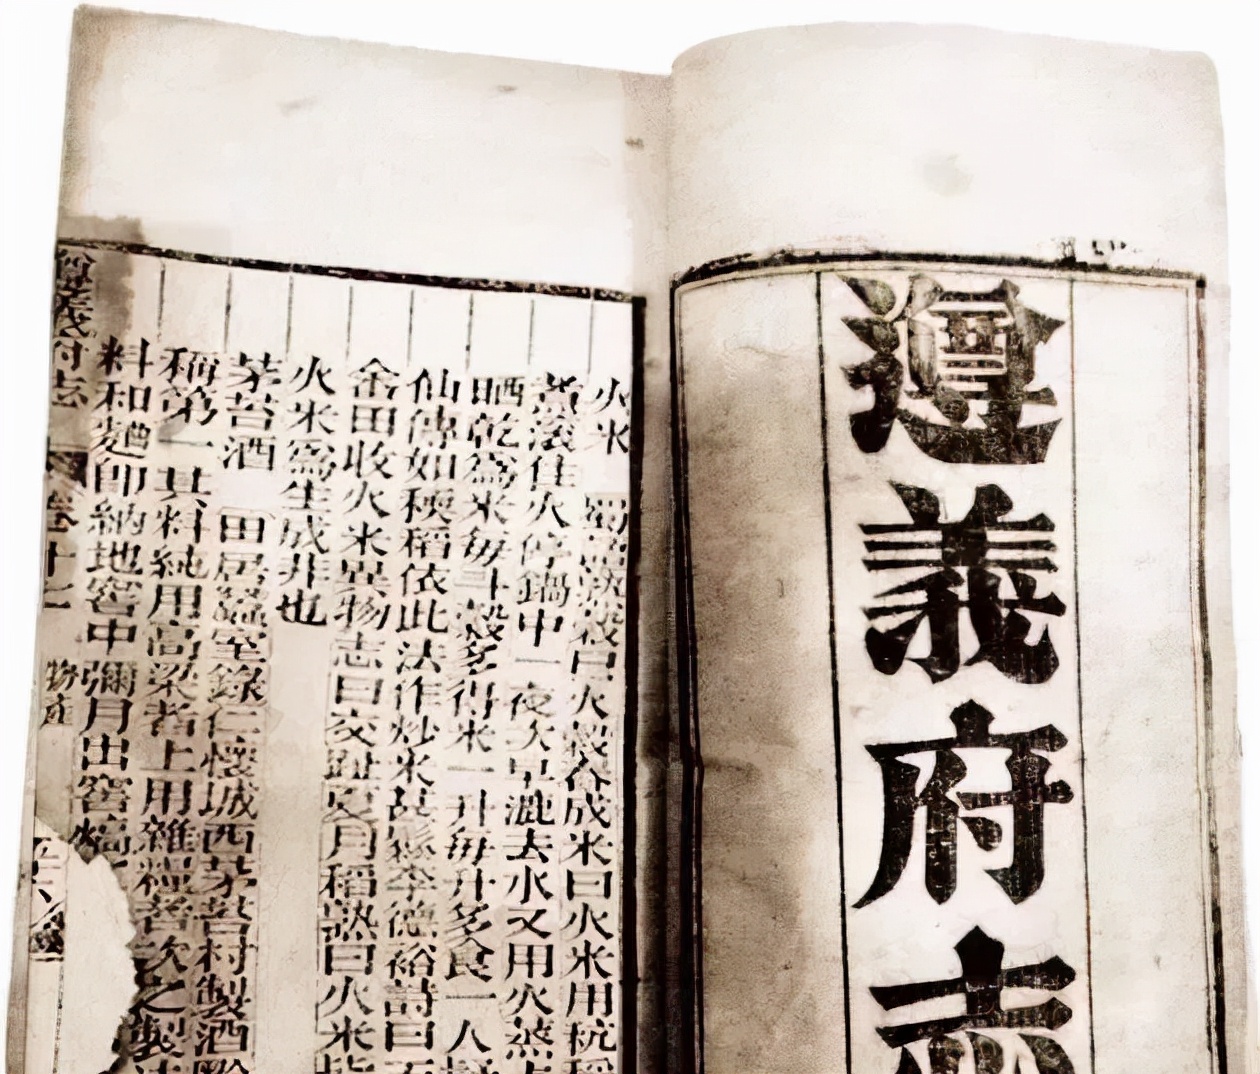 遵義府志
火米 蜀蒸熟穀曰火穀舂成米曰火米用秔稻
煮滾住火停鍋中一夜次早漉去水又用火蒸上
晒乾爲米每斗穀多得米一升每升多食一人
仙傳如稉稻依此法作炒米甚鬆李德裕詩曰五
畬田收火米異物志曰交趾夏月稻熟曰火米
火米爲生成非也
茅苔酒 田居蠶室錄仁懷城西茅苔村製酒黔
稱第一其料純用高梁者上用雜糧者次之製法
料和麯即納地窖中彌月出窖熇
遵義府志 卷十七 物產